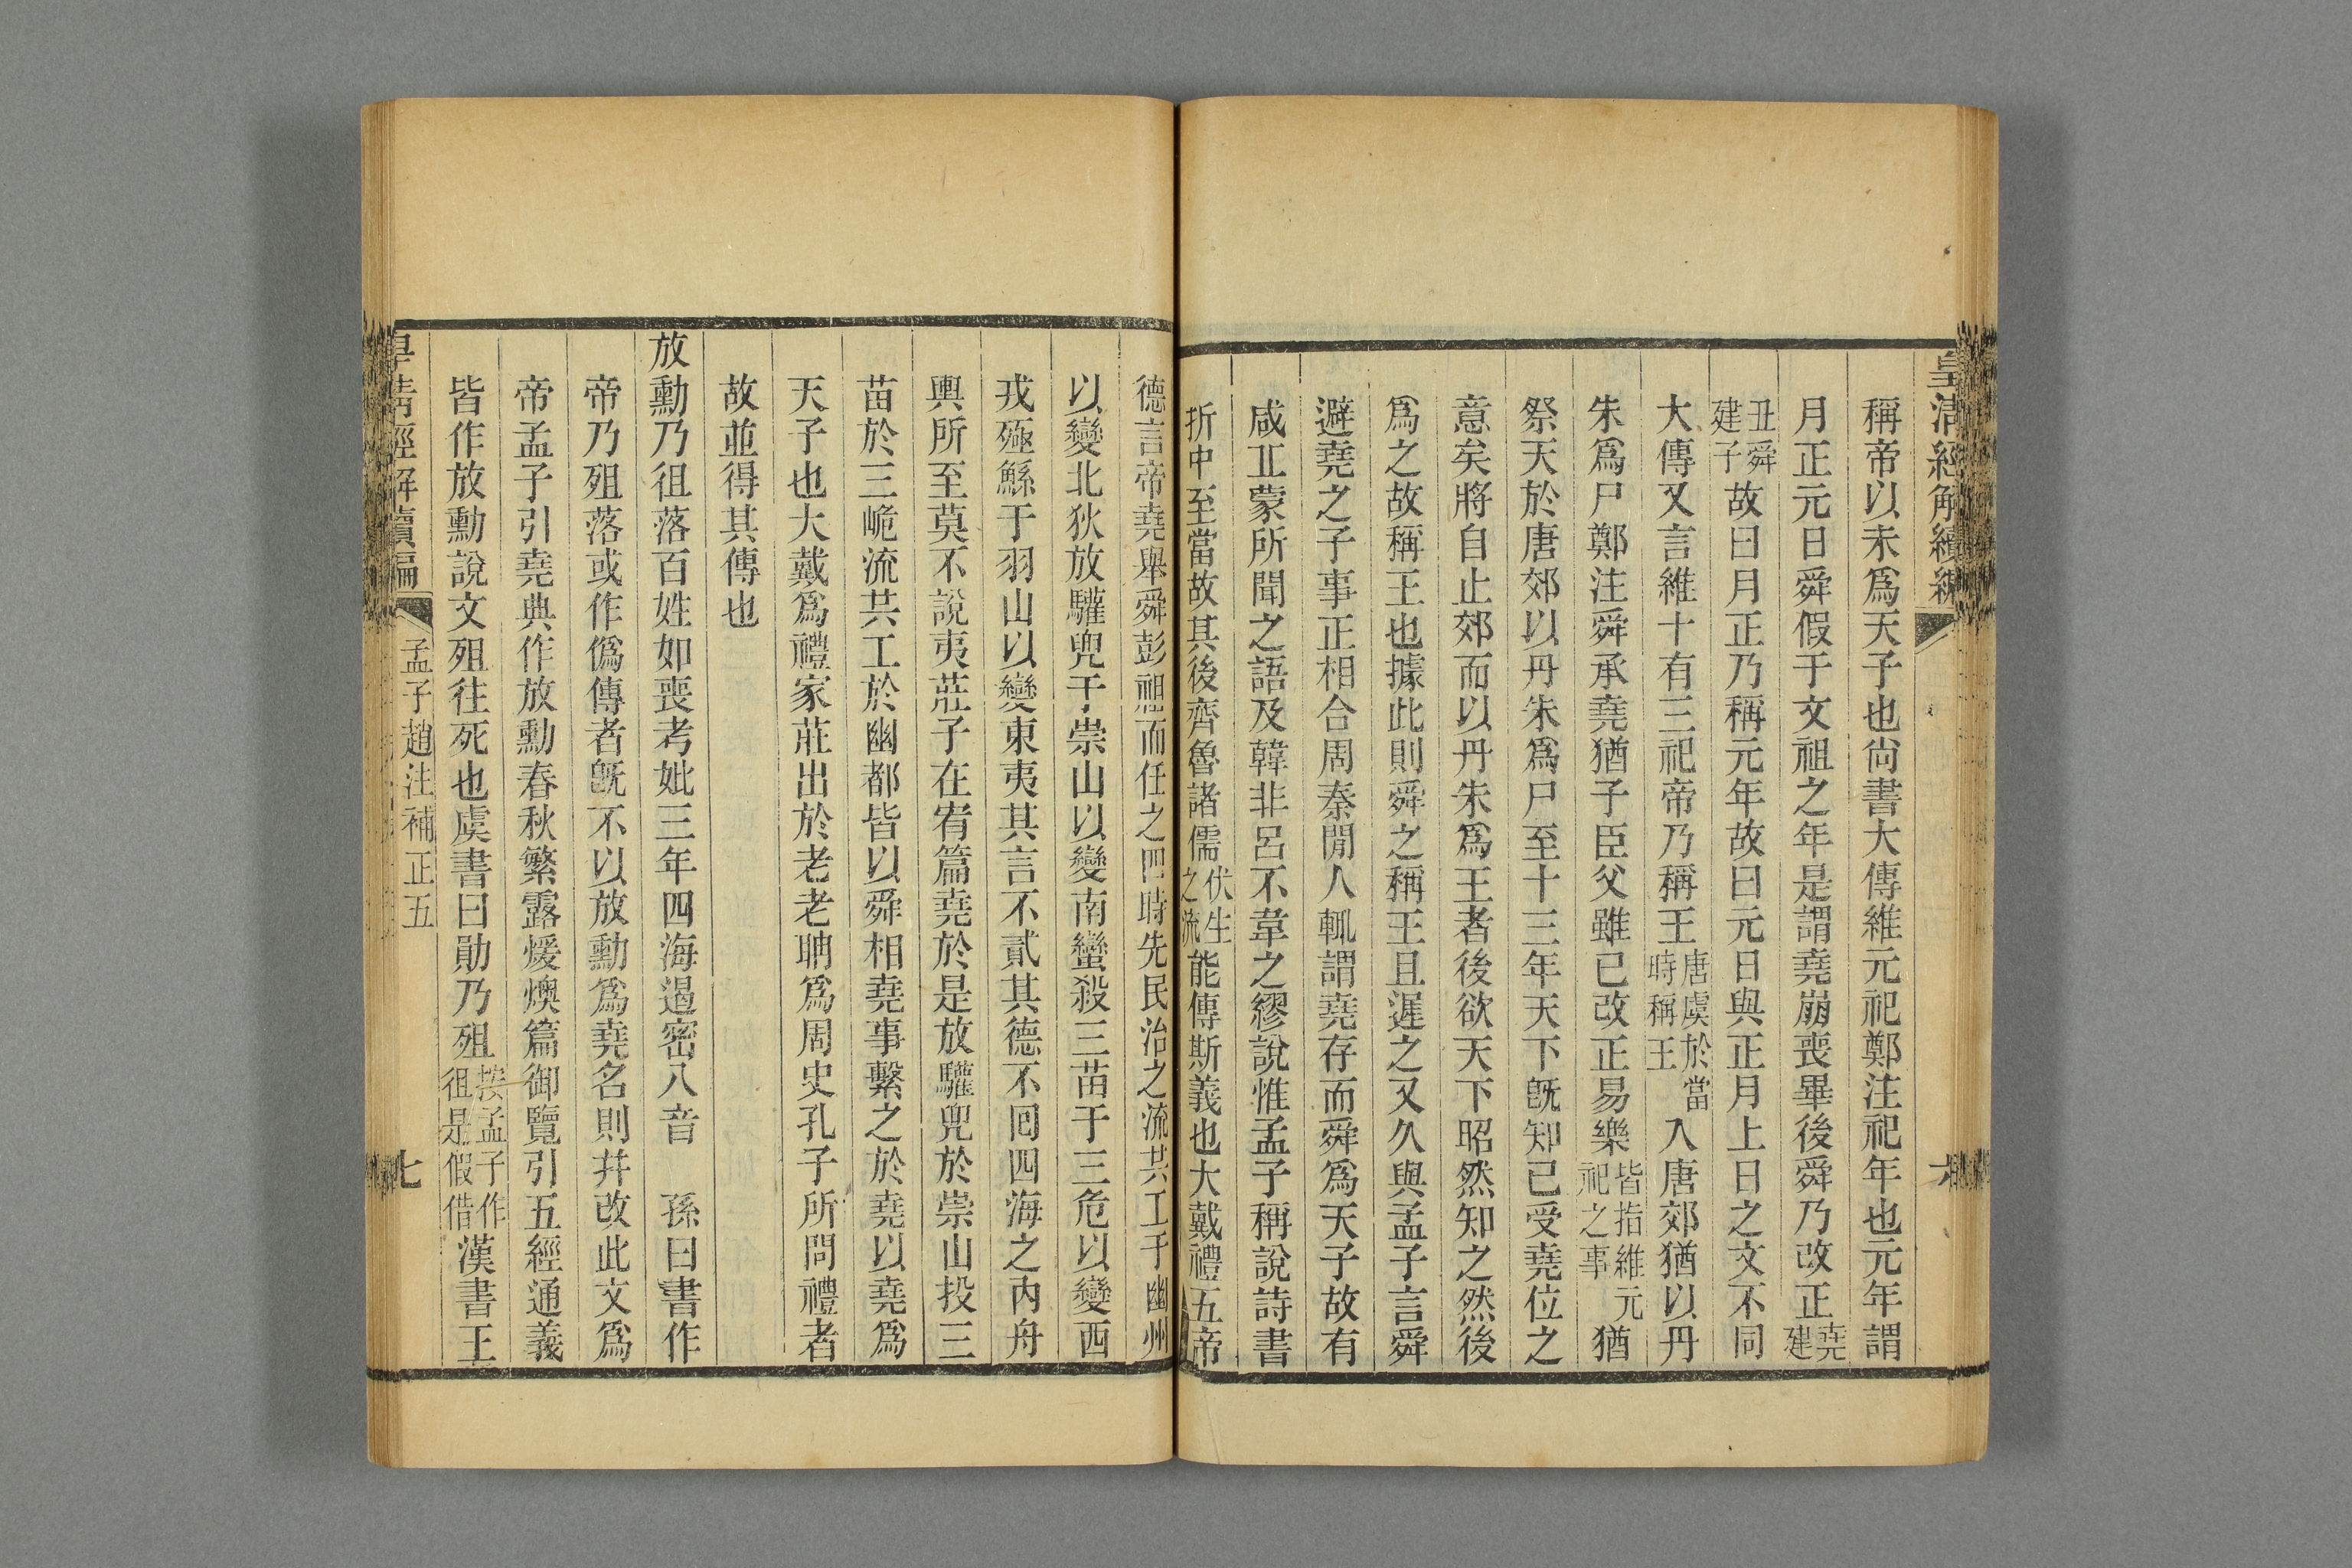 皇清經解續編
稱帝以未爲天子也尙書大傳維元祀鄭注祀年也元年謂
月正元日舜假于文祖之年是謂堯崩喪畢後舜乃改正堯建
丑舜建子故曰月正乃稱元年故曰元日與正月上日之文不同
大傳又言維十有三祀帝乃稱王唐虞於當時稱王入唐郊猶以丹
朱爲尸鄭注舜承堯猶子臣父雖已改正易樂皆指維元祀之事猶
祭天於唐郊以丹朱爲尸至十三年天下旣知已受堯位之
意矣將自止郊而以丹朱爲王者後欲天下昭然知之然後
爲之故稱王也據此則舜之稱王且遲之又久與孟子言舜
避堯之子事正相合周秦閒人輒謂堯存而舜爲天子故有
咸丘蒙所聞之語及韓非呂不韋之繆說惟孟子稱說詩書
折中至當故其後齊魯諸儒伏生之流能傳斯義也大戴禮五帝
德言帝堯舉舜彭祖而任之四時先民治之流共工于幽州
以變北狄放驩兜于崇山以變南蠻殺三苗于三危以變西
戎殛鯀于羽山以變東夷其言不貳其德不回四海之內舟
輿所至莫不說夷莊子在宥篇堯於是放驩兜於崇山投三
苗於三峗流共工於幽都皆以舜相堯事繫之於堯以堯爲
天子也大戴爲禮家莊出於老老聃爲周史孔子所問禮者
故並得其傳也
放勳乃徂落百姓如喪考妣三年四海遏密八音　孫曰書作
帝乃殂落或作僞傳者旣不以放勳爲堯名則幷改此文爲
帝孟子引堯典作放勳春秋繁露煖燠篇御覽引五經通義
皆作放勳說文殂往死也虞書曰勛乃殂按孟子作徂是假借漢書王
皇清經解續編　孟子趙注補正五　七